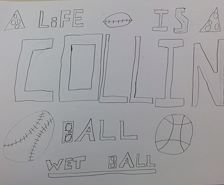 A LiFE IS A
COLLIN
BALL
WET BALL